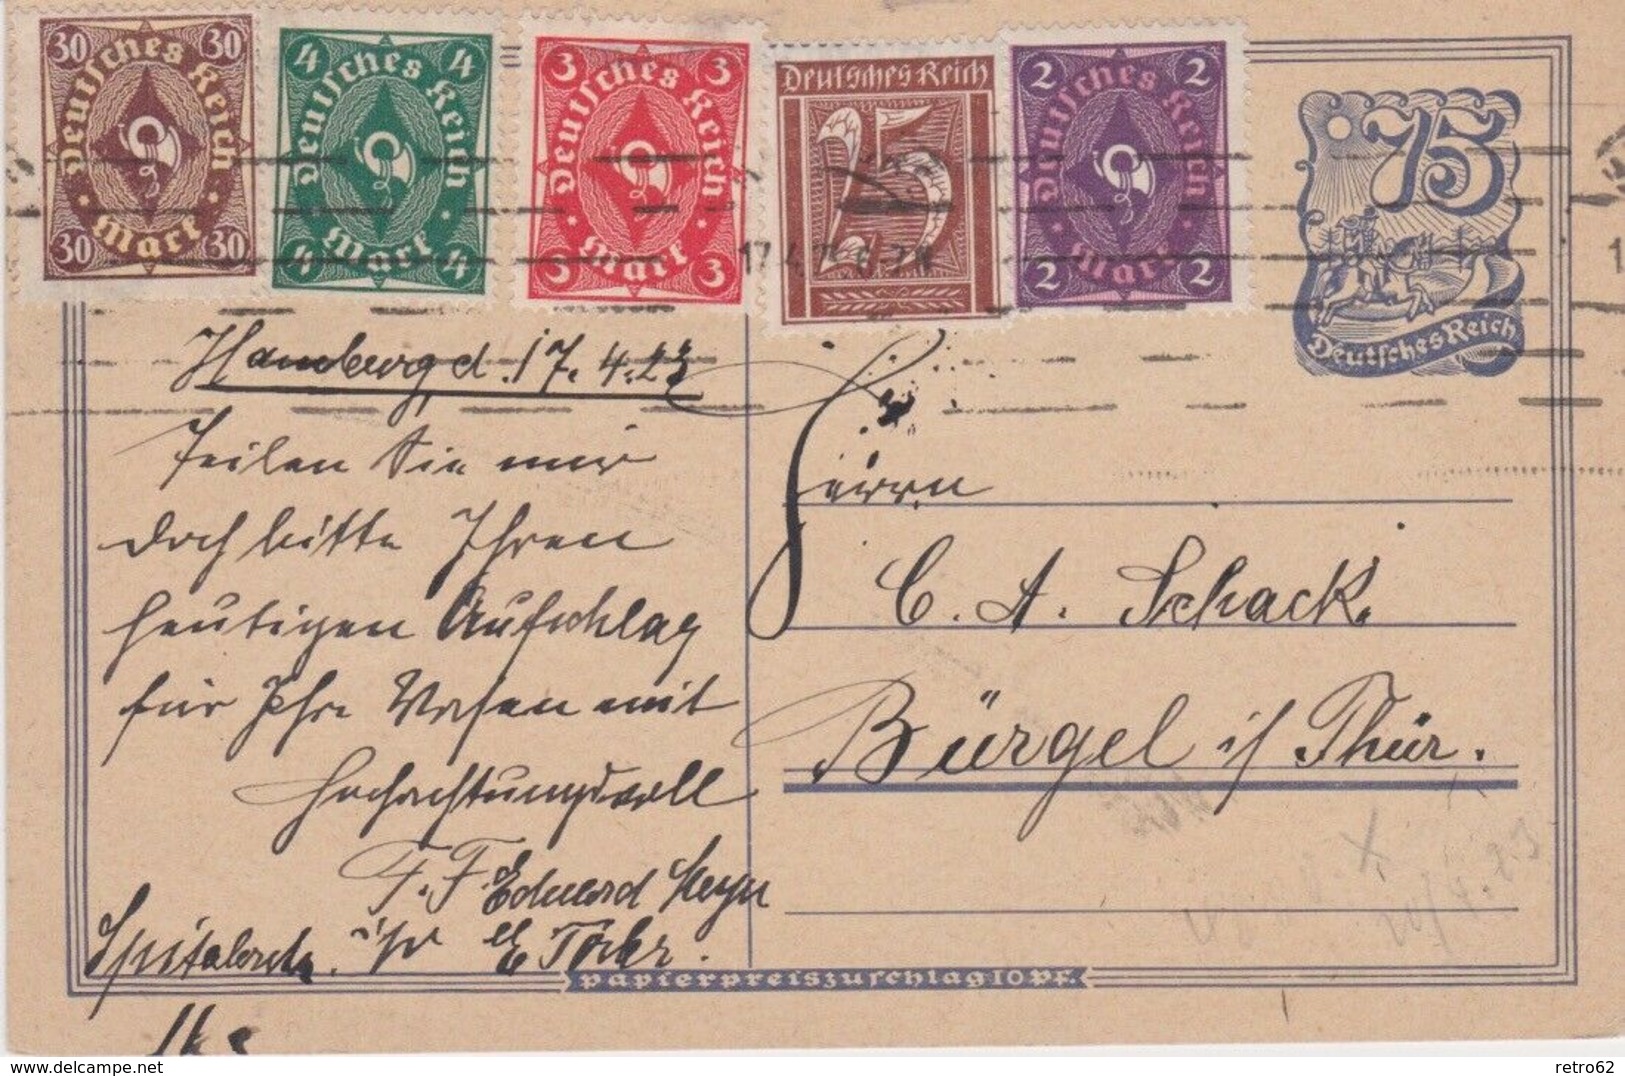 30 30
Deutsches Reich
Mark
30 30
4 4
Deutsches Reich
Mark
4 4
3 3
Deutsches Reich
Mark
3 3
Deutsches Reich
25
2 2
Deutsches Reich
Mark
2 2
75
Deutsches Reich
17.4.
Hamburg, d. 17.4.23
Teilen Sie mir
doch bitte Ihren
heutigen Aufschlag
für Ihre Waren mit
Hochachtungsvoll
F. F. Eduard
Herrn
C. A. Schack.
Bürgel i/ Thür.
Papierpreiszuschlag 10 Pf.
retro62